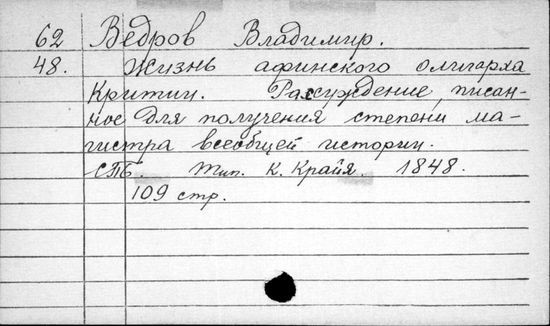 62 Ведров Владимир.
48. Жизнь афинского олигарха
Критии. Рассуждение, писан-
ное для получения степени ма-
гистра всеобщей истории.
СПБ. Тип. К. Крайя. 1848.
109 стр.